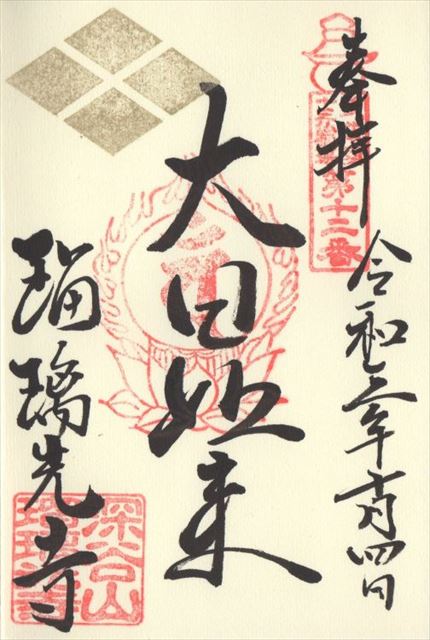 奉拝
第十二番
令和三年十月四日
大日如来
瑠璃光寺